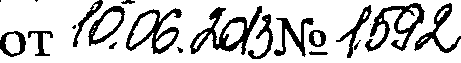 от 10.06.2013 № 1592